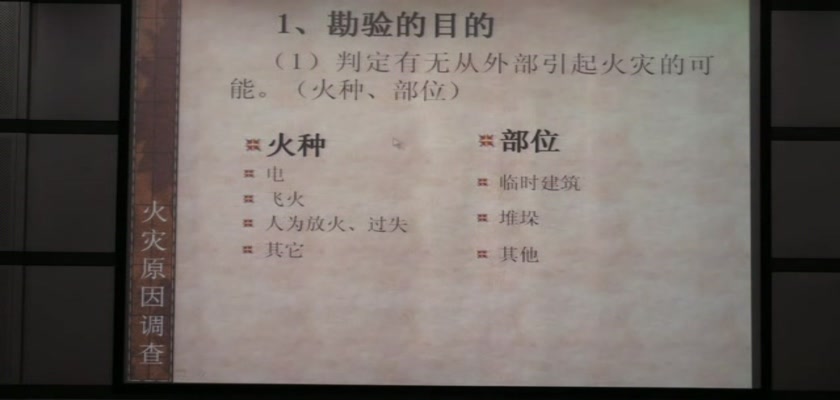 1、勘验的目的
（1）判定有无从外部引起火灾的可
能。（火种、部位）
火种
电
飞火
人为放火、过失
其它
部位
临时建筑
堆垛
其他
火灾原因调查